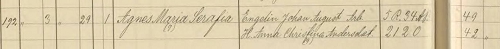 192 „ 3 „ 29 1 Agnes Maria Serafia Engelin Johan August Arb. 5 R. 34 49
H. Anna Christina Andersdot. 2120 42